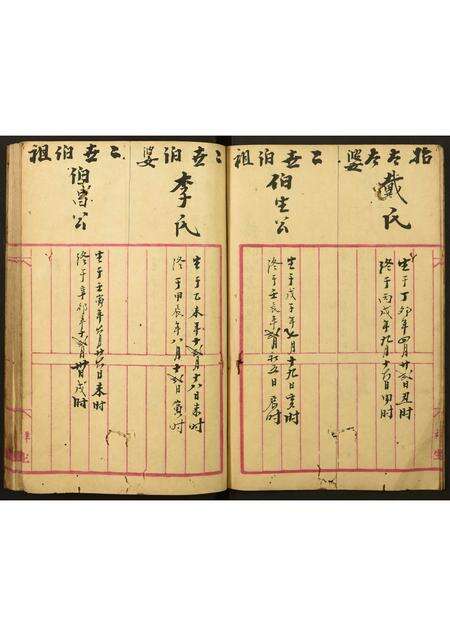 始太太婆
戴氏
生于丁卯年四月廿日丑时
终于丙戌年九月十日田时
二世伯祖
伯生公
生于戊子年七月十九日亥时
终于壬辰年月初五日辰时
二世伯婆
李氏
生于乙未年十月十八日未时
终于甲辰年八月十日寅时
二世伯祖
伯富公
生于壬寅年六月廿六日未时
终于辛卯年十月廿日戌时